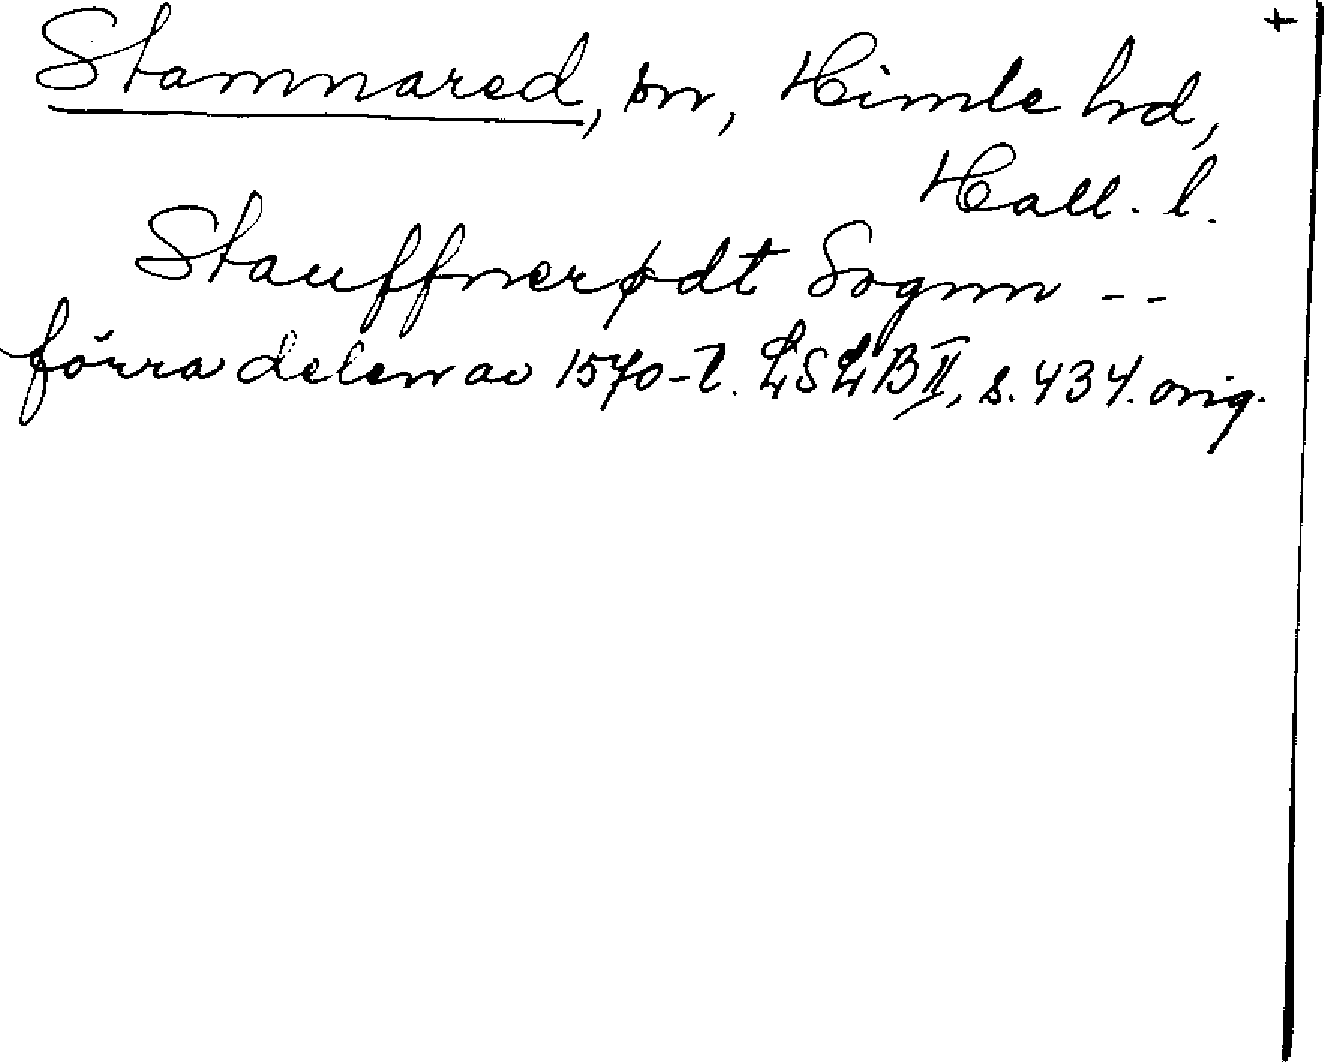 +
Stamnared, sn, Himle hd,
Hall. l.
Stauffnerødt Sognn --
förra delen av 1570-t. LSLB II, s. 434. orig.